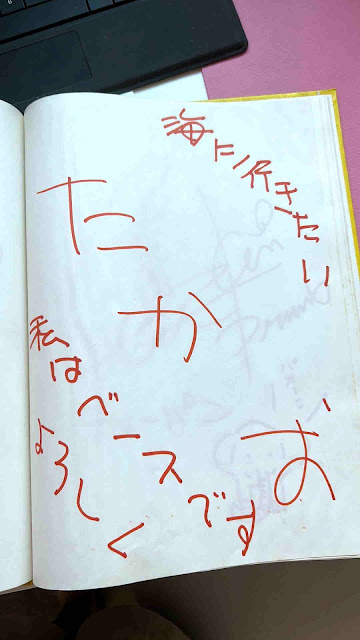 海に行きたい
たかお
私はベースです
よろしく